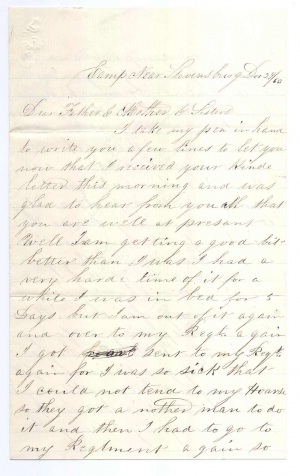 Camp Near Stevensburg Dec 27/63
Dear Father & Mother & Sisters
I take my pen in hand
to write you a few lines to let you
now that I recived your kinde
letter this morning and was
glad to hear from you all that
you are well at presant
Well I am getting a good bit
better than I was I had a
very harde time of it for a
while I was in bed for 5
Days but I am out of it again
and over to my Regt again
I got sent to my Regt
again for I was so sick that
I could not tend to my Hoarse
so they got a nother man to do
it and then I had to go to
my Regtment a gain so